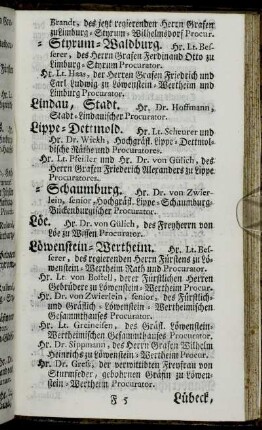 Brandt, des jetzt regierenden Herrn Grafen
zu Limburg-Styrum-Wilhelmsdorf Procur.
- Styrum-Waldburg. Hr. Lt. Bes-
serer, des Herrn Grafen Ferdinand Otto zu
Limburg-Styrum Procurator.
Hr. Lt. Haas, der Herren Grafen Friedrich und
Carl Ludwig zu Löwenstein-Wertheim und
Limburg Procurator.
Lindau, Stadt. Hr. Dr. Hoffmann,
Stadt-Lindauischer Procurator.
Lippe-Dettmold. Hr. Lt. Scheurer und
Hr. Dr. Wickh, Hochgräfl. Lippe-Dettmol-
dische Räthe und Procuratores.
Hr. Lt. Pfeiller und Hr. Dr. von Gülich, des
Herrn Grafen Friederich Alexanders zu Lippe
Procuratores.
- Schaumburg. Hr. Dr. von Zwier-
lein, senior, Hochgräfl. Lippe-Schaumburg-
Bückenburgischer Procurator.
Löe. Hr. Dr. von Gülich, des Freyherrn von
Löe zu Wissen Procurator.
Löwenstein-Wertheim. Hr. Lt. Bes-
serer, des regierenden Herrn Fürstens zu Lö-
wenstein-Wertheim Rath und Procurator.
Hr. Lt. von Bostell, derer Fürstlichen Herren
Gebrüdere zu Löwenstein-Wertheim Procur.
Hr. Dr. von Zwierlein, senior, des Fürstlich-
und Gräflich-Löwenstein-Wertheimischen
Gesammthauses Procurator.
Hr. Lt. Greineisen, des Gräfl. Löwenstein-
Wertheimischen Gesammthauses Procurator.
Hr. Dr. Sippmann, des Herrn Grafen Wilhelm
Heinrichs zu Löwenstein-Wertheim Procur.
Hr. Dr. Greß, der verwittibten Freyfrau von
Sturmfeder, gebohrnen Gräfin zu Löwen-
stein-Wertheim Procurator.
F 5 Lübeck,